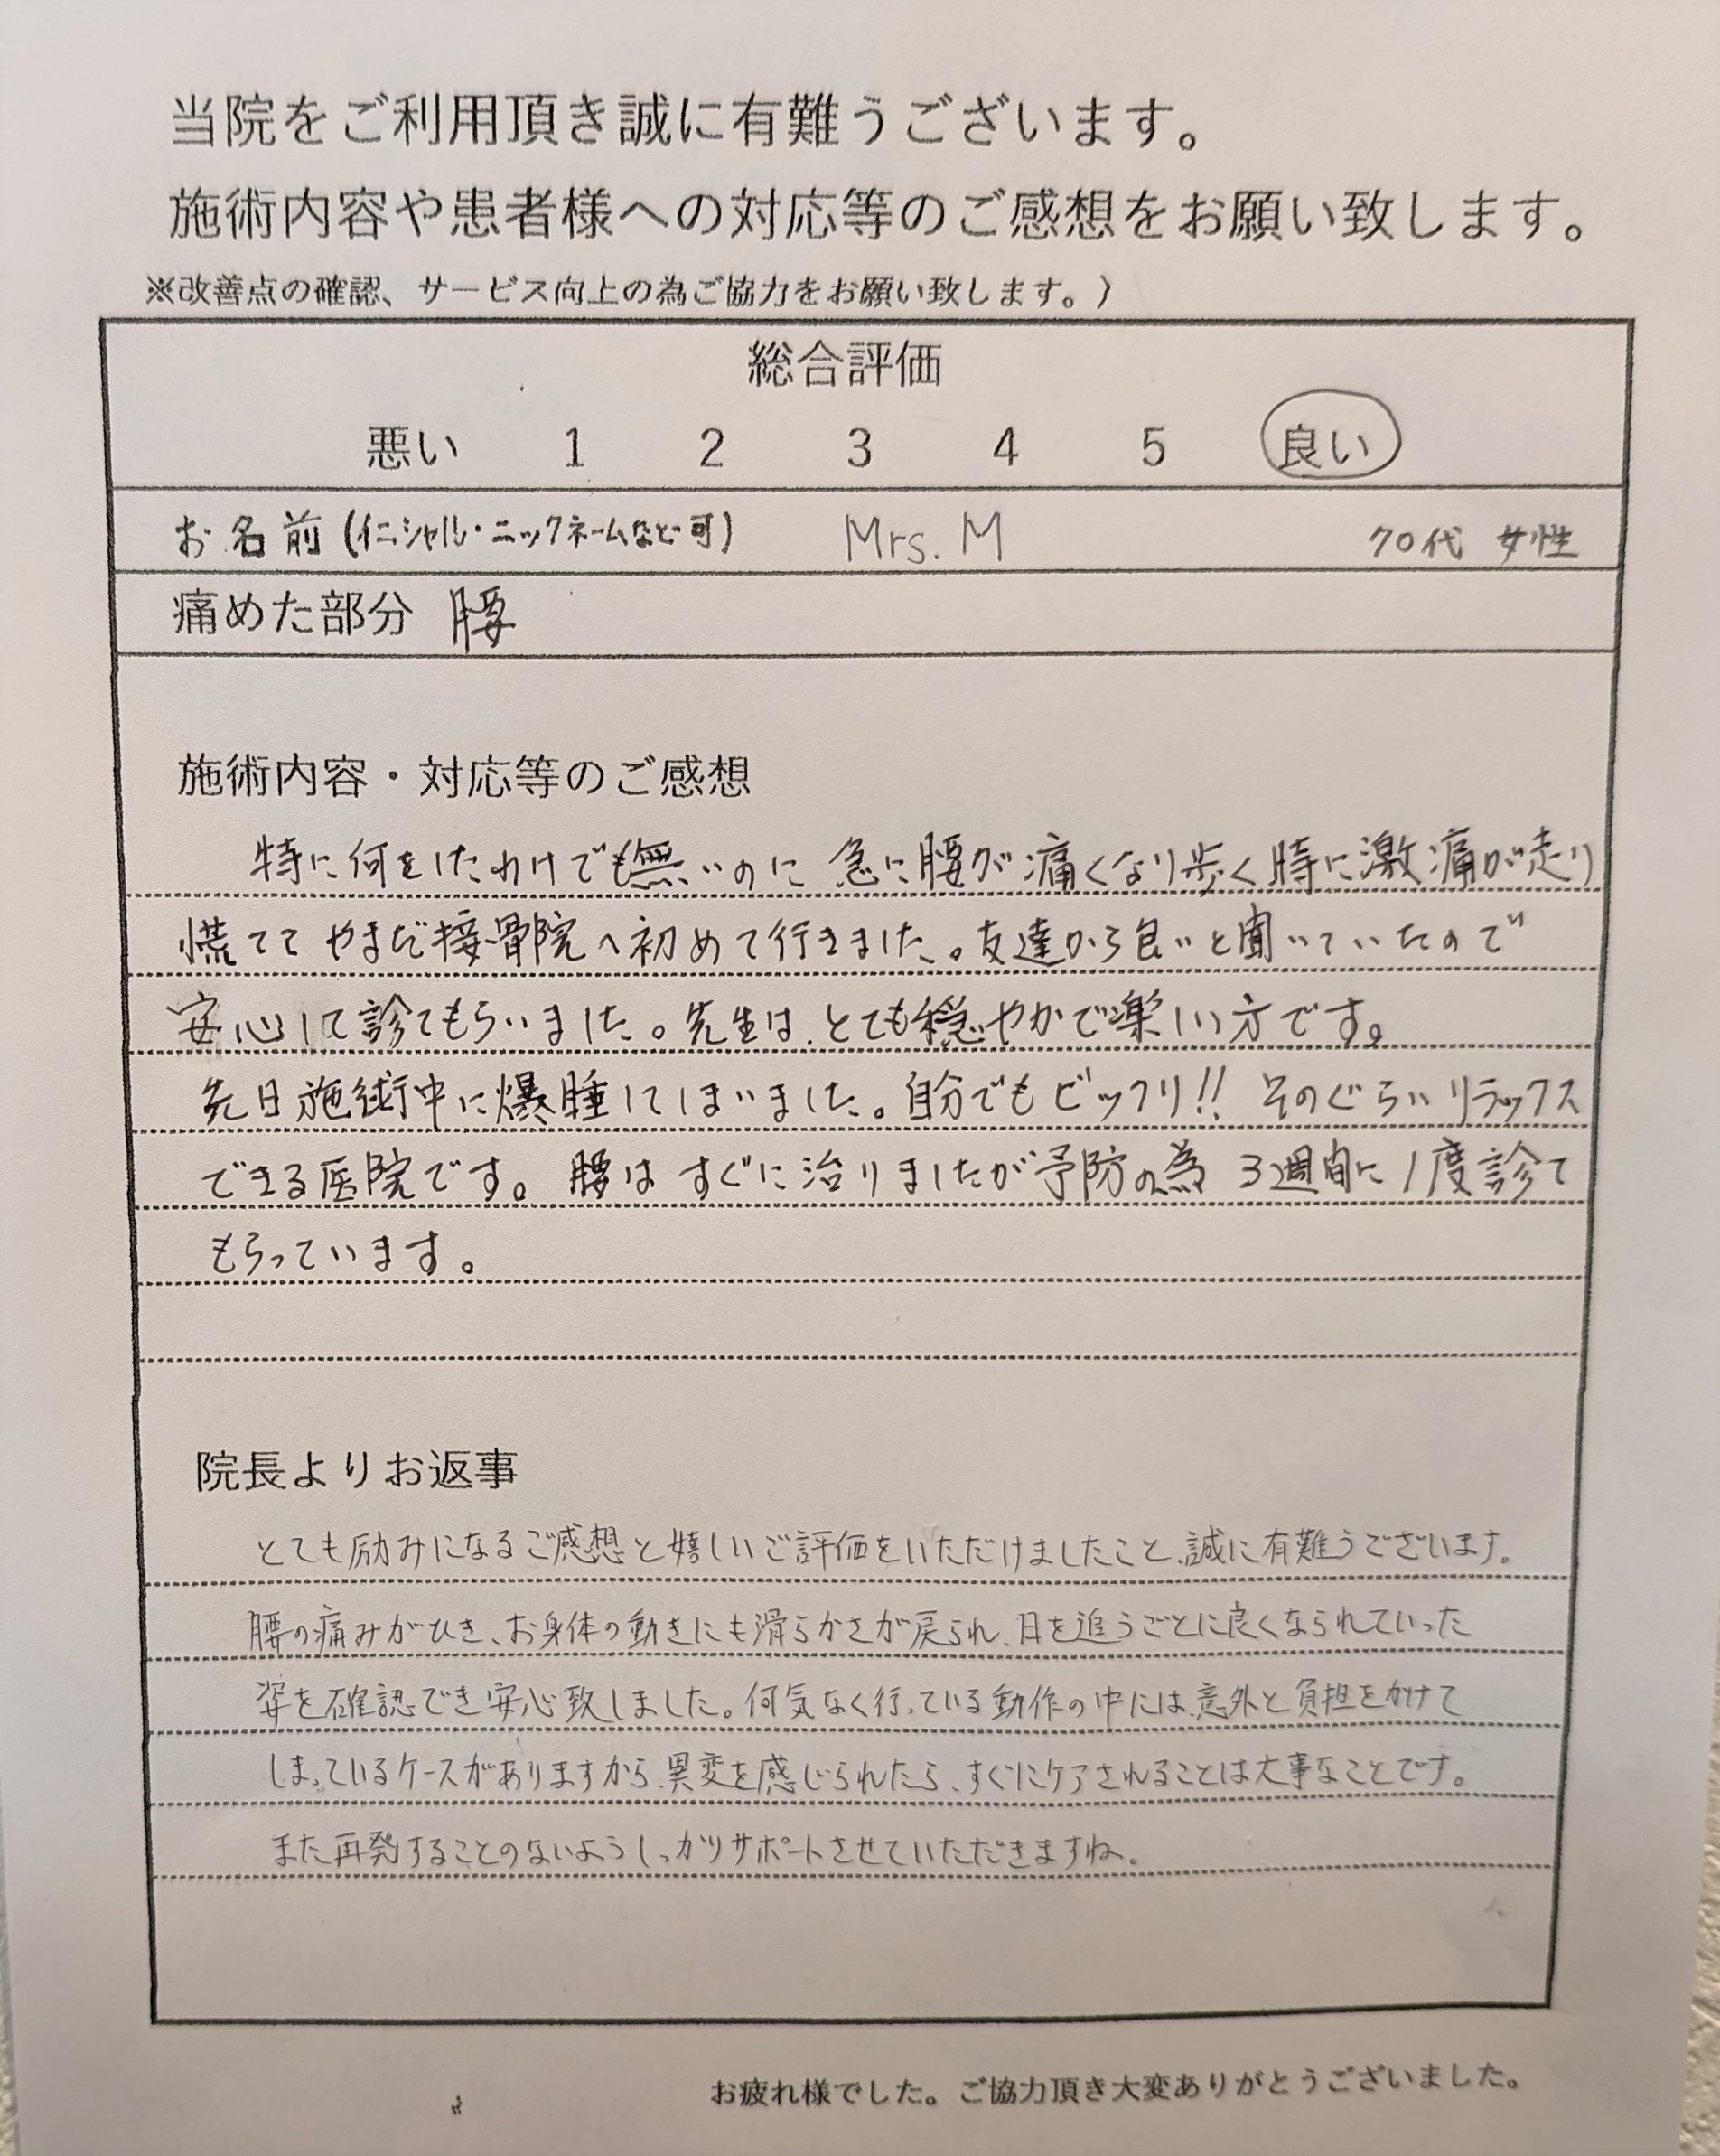 当院をご利用頂き誠に有難うございます。
施術内容や患者様への対応等のご感想をお願い致します。
※改善点の確認、サービス向上の為ご協力をお願い致します。）
総合評価
悪い 1 2 3 4 5 良い
お名前(イニシャル・ニックネームなど可) Mrs. M 70代 女性
痛めた部分 腰
施術内容・対応等のご感想
特に何をしたわけでも無いのに 急に腰が痛くなり歩く時に激痛が走り
慌てて やまだ接骨院へ初めて行きました。友達から良いと聞いていたので
安心して診てもらいました。先生は、とても穏やかで楽しい方です。
先日施術中に爆睡してしまいました。自分でもビックリ!! そのぐらいリラックス
できる医院です。腰は すぐに治りましたが予防の為 3週間に1度診て
もらっています。
院長よりお返事
とても励みになるご感想と嬉しいご評価をいただけましたこと、誠に有難うございます。
腰の痛みがひき、お身体の動きにも滑らかさが戻られ、日を追うごとに良くなられていった
姿を確認でき安心致しました。何気なく行っている動作の中には、意外と負担をかけて
しまっているケースがありますから、異変を感じられたら、すぐにケアされることは大事なことです。
また再発することのないようしっかりサポートさせていただきますね。
お疲れ様でした。ご協力頂き大変ありがとうございました。